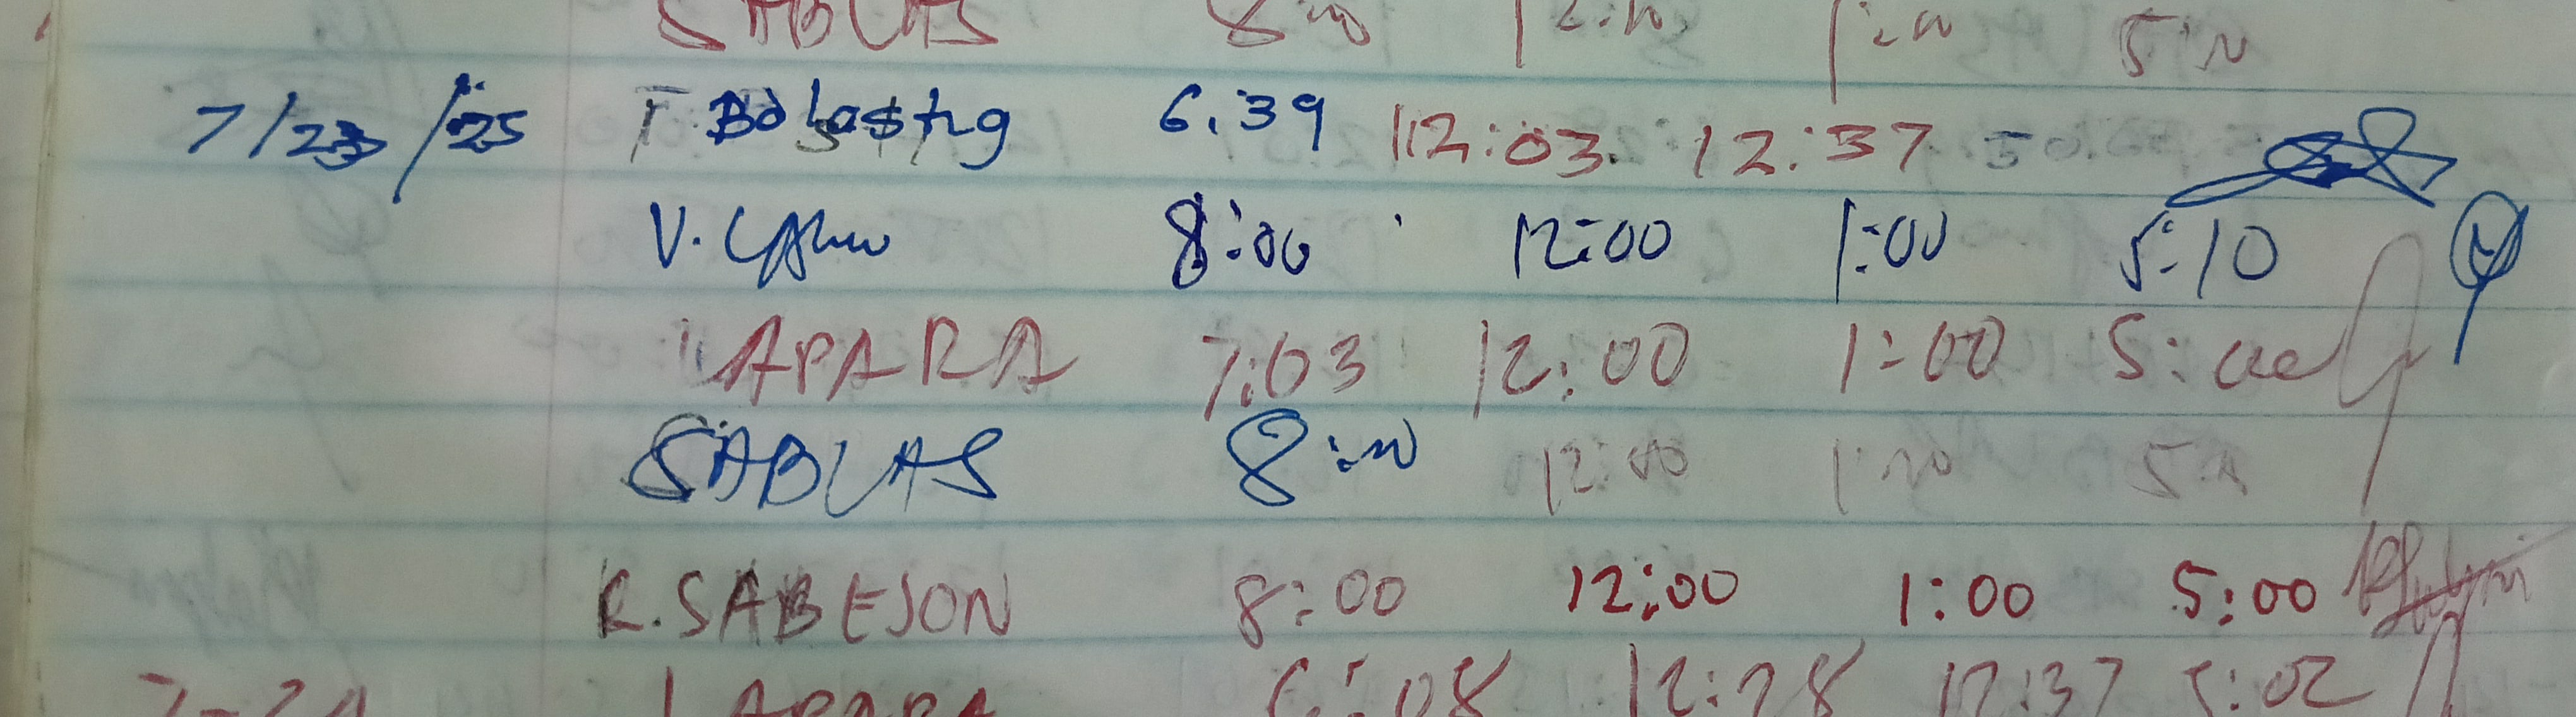 SABLAS 8:00 12:00 1:00 5:00
7/23/25 T Balasting 6:39 12:03 12:37
V. 8:00 12:00 1:00 5:10
LAPARA 7:03 12:00 1:00 5:00
SABLAS 8:00 12:00 1:00 5:00
R. SABEJON 8:00 12:00 1:00 5:00
7-24 LAPARA 6:08 12:28 12:37 5:02